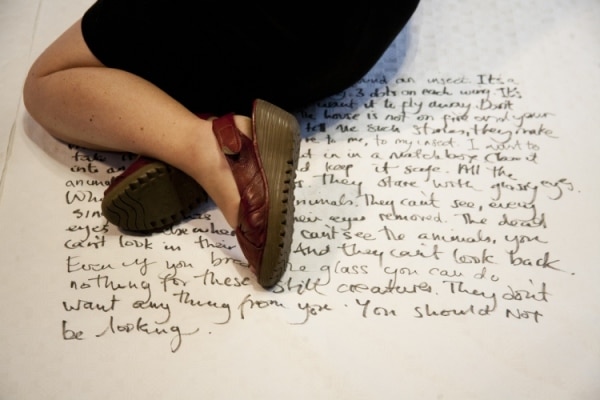 und an insect. It's a
3 dots on each wing. It's
want it to fly away. Don't
he house is not on fire and your
tell me such stories, they make
re to me, to my insect. I want to
take it in in a matchbox clean it
into an and keep it safe. All the
animals. They stare with glassy eyes.
Wh nimals. They can't see, every
sin heir eyes removed. The dead
eyes can't see the animals, you
can't look in their And they can't look back.
Even if you break the glass you can do
nothing for these still creatures. They don't
want anything from you. You should not
be looking.